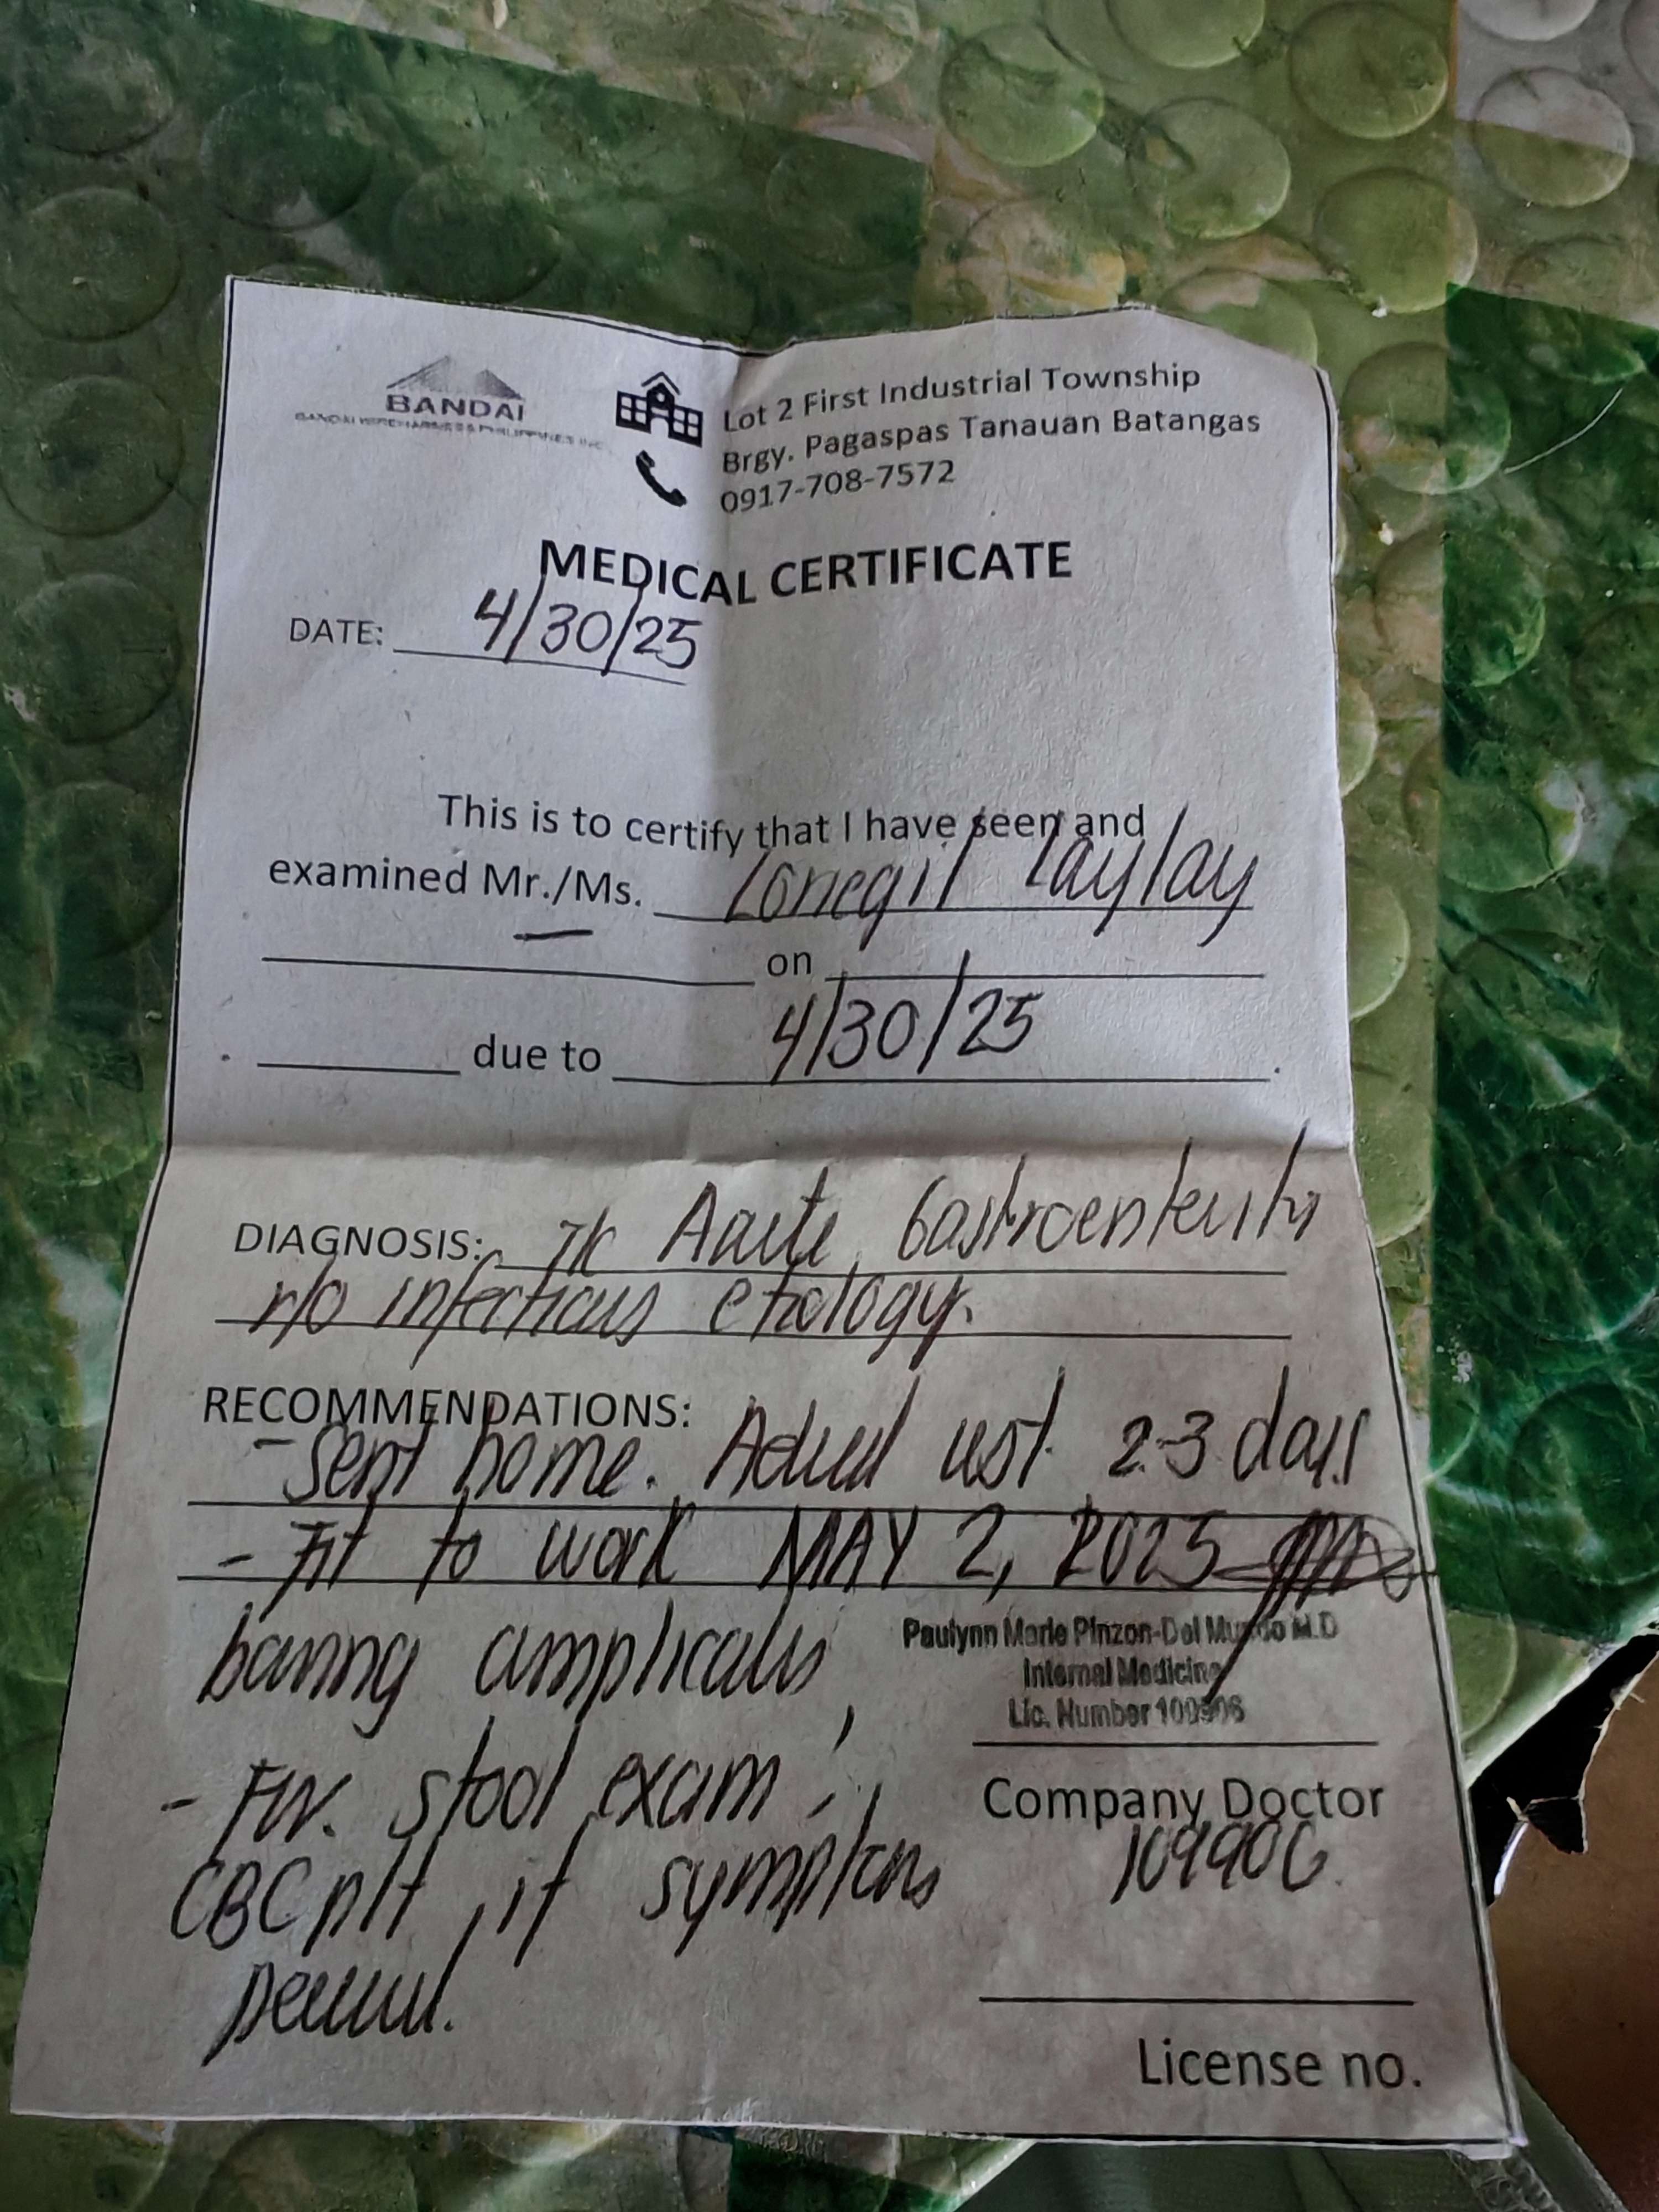 BANDAI
BANDAI WIREHARNESS PHILIPPINES INC.
Lot 2 First Industrial Township
Brgy. Pagaspas Tanauan Batangas
0917-708-7572
MEDICAL CERTIFICATE
DATE: 4/30/25
This is to certify that I have seen and
examined Mr./Ms. Lonegil Laylay
on
4/30/25
due to
DIAGNOSIS: Acute Gastroenteritis
r/o infectious etiology.
RECOMMENDATIONS:
- Sent home. Advised rest 2-3 days
- Fit to work MAY 2, 2025
barring
Paulynn Marie Pinzon-Del Mundo M.D
Internal Medicine
Lic. Number
- For stool exam,
CBC plt, if symptoms
Company Doctor
109906
License no.